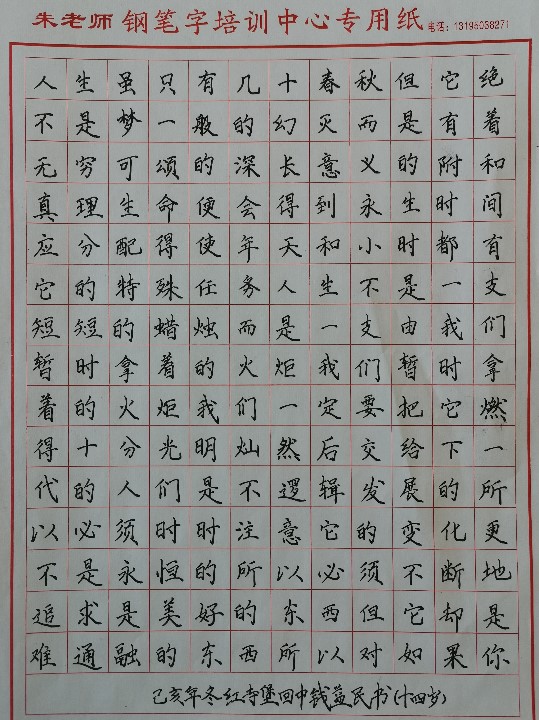 朱老师钢笔字培训中心专用纸 电话：13195038271
人生虽只有几十春秋但它绝
不是梦一般的幻灭而是有着
无穷可颂的深长意义的附和
真理生命便会得到永生时间
应分配得使年天和小时都有
它的特殊任务人生不是一支
短短的蜡烛而是一支由我们
暂时拿着的火炬我们暂时拿
着的火炬我们一定要把它燃
得十分光明灿然后交给下一
代的人们是不逻辑发展的所
以必须时时注意它的变化更
不是永恒的所以必须不断地
追求是美好的东西但它却是
难通融的东西所以对如果你
己亥年冬红寺堡回中钱益民书(十四岁)